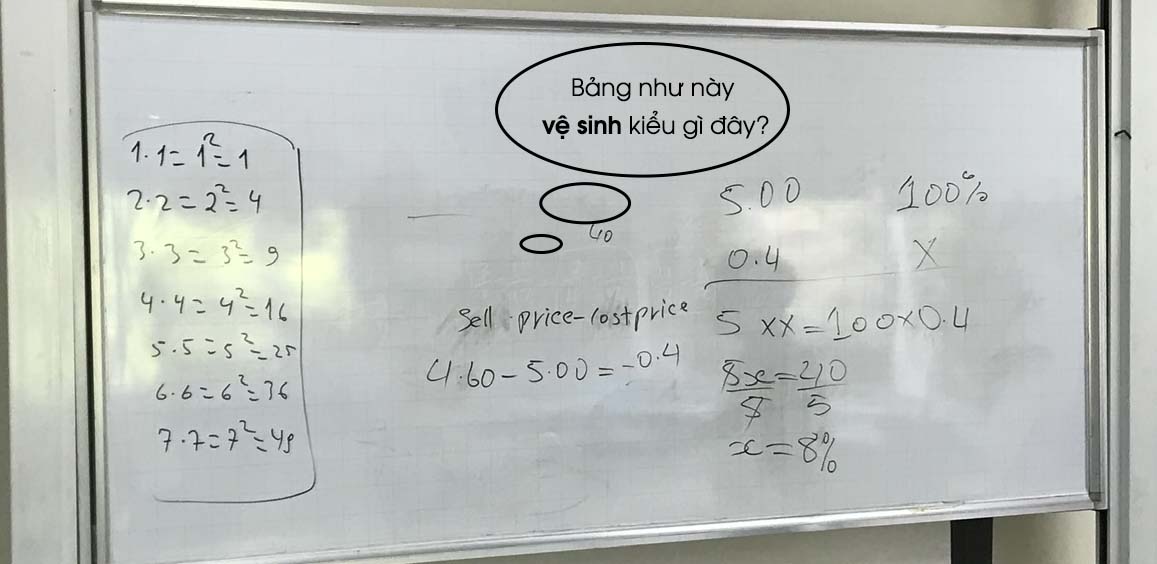 Bảng như này
vệ sinh kiểu gì đây?
1·1=1²=1
2·2=2²=4
3·3=3²=9
4·4=4²=16
5·5=5²=25
6·6=6²=36
7·7=7²=49
40
Sell price-Costprice
4.60-5.00=-0.4
5.00 100%
0.4 X
5 xx=100×0.4
5x=40
5 5
x=8%